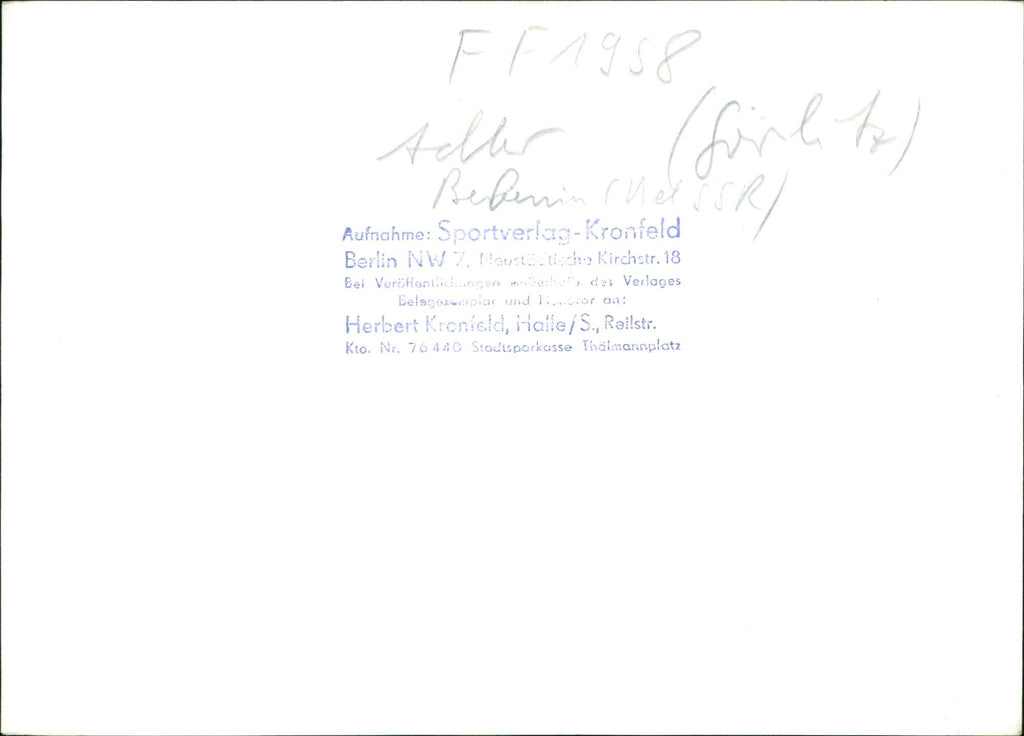 FF 1958
Adler (Görlitz)
(UdSSR)
Aufnahme: Sportverlag-Kronfeld
Berlin NW 7, Neustädtische Kirchstr. 18
Bei Veröffentlichungen außerhalb des Verlages
Belegexemplar und Honorar an:
Herbert Kronfeld, Halle/S., Reilstr.
Kto. Nr. 76 440 Stadtsparkasse Thälmannplatz